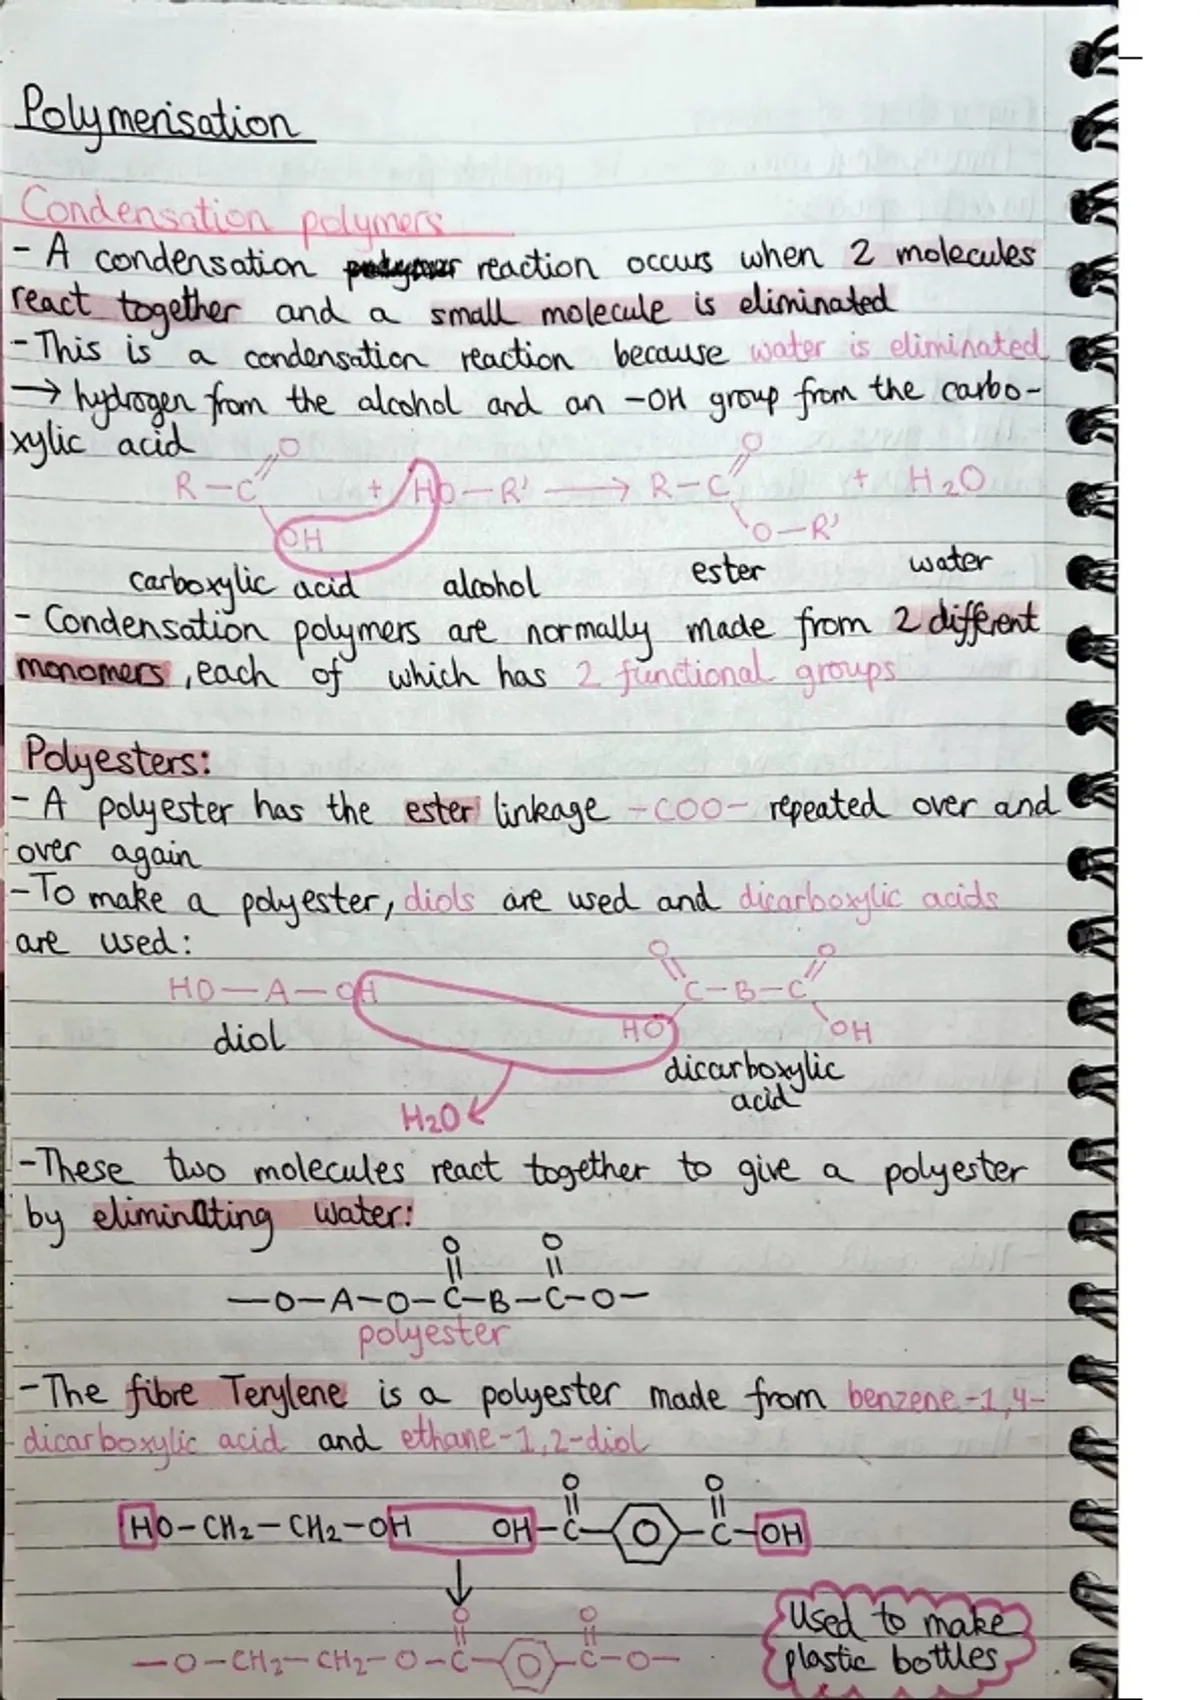 Polymerisation
Condensation polymers
- A condensation reaction occurs when 2 molecules
react together and a small molecule is eliminated
- This is a condensation reaction because water is eliminated
→ hydrogen from the alcohol and an -OH group from the carbo-
xylic acid
O O
R-C + HO-R' → R-C + H₂O
OH O-R'
carboxylic acid alcohol ester water
- Condensation polymers are normally made from 2 different
monomers, each of which has 2 functional groups
Polyesters:
- A polyester has the ester linkage -COO- repeated over and
over again
- To make a polyester, diols are used and dicarboxylic acids
are used:
O O
HO-A-OH C-B-C
HO OH
diol dicarboxylic
acid
H₂O
- These two molecules react together to give a polyester
by eliminating water:
O O
-O-A-O-C-B-C-O-
polyester
- The fibre Terylene is a polyester made from benzene-1,4-
dicarboxylic acid and ethane-1,2-diol
O O
HO-CH₂-CH₂-OH OH-C- -C-OH
O O
-O-CH₂-CH₂-O-C- -C-O-
Used to make
plastic bottles